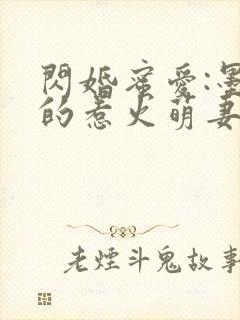 閃婚蜜愛:墨
的惹火萌妻
老煙斗鬼故事